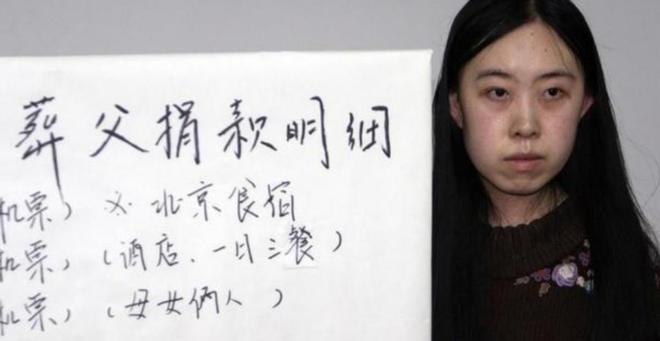 葬父捐款明细
机票）※北京食宿
机票）（酒店、一日三餐）
机票）（母女俩人）